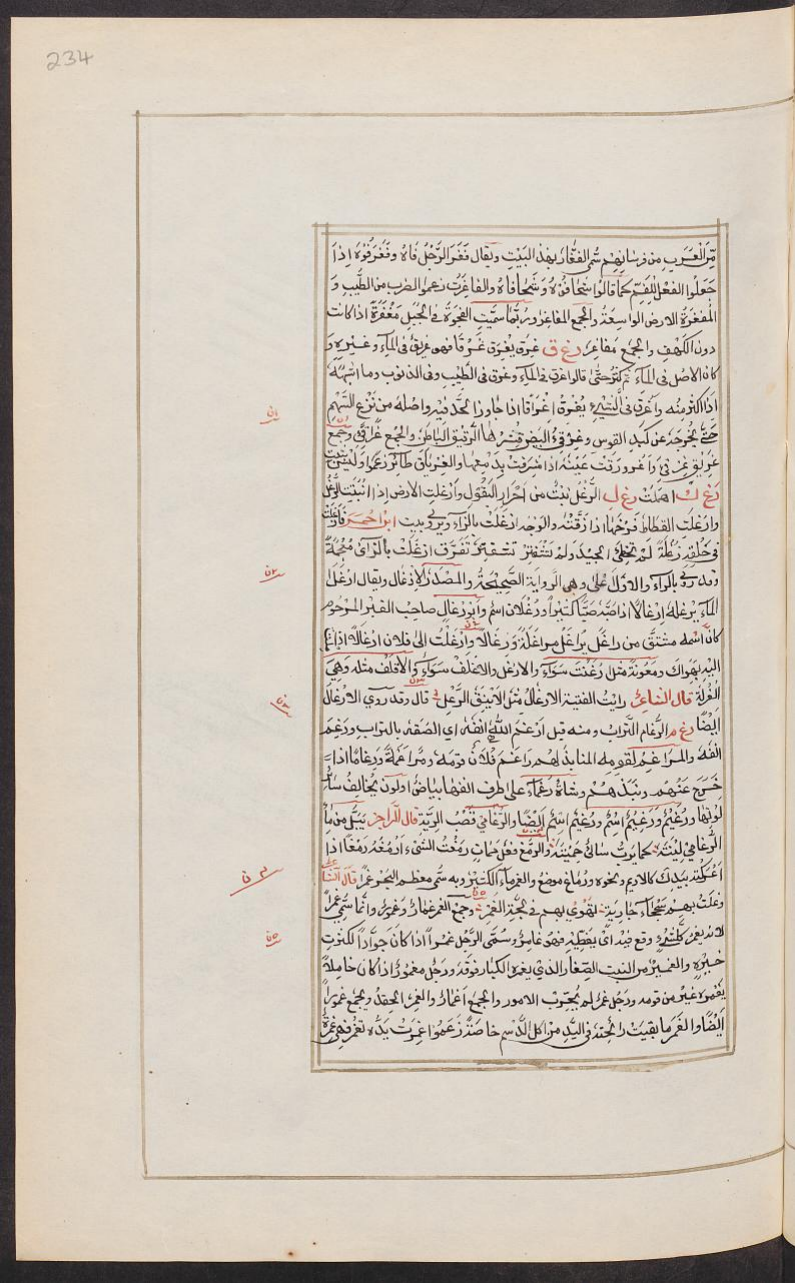 234
مِّنَ الْعَرَبِ من فرسانهم سُمّي الفغّار بهذا البَيْتِ ويقال نَفَغَر الرَّجُلُ فاهُ ونَفَغَرَ فُوهُ اِذَا
جَعَلُوا الفعْلَ لِلْفَمِ كما قالوا شَحَا فُوْهُ وَشَحَا فاهُ والفاغِرَةُ زعموا ضرب من الطِّيبِ وَ
المَفْغَرَةُ الارض الواسعَةُ والجمع المفاغر ورُبَّما سمّيت الفَجْوَةُ في الجَبَل مَفْغَرَةً اذا كانت
دون الكَهْفِ والجمع مفاغر رغ ق غرِقَ يَغْرَق غَرَقًا فهو غريقٌ في المآءِ وغيره وَ
كان الاصل في المآء ثم كثر حتّى قالوا غرق في المآء وغرق في الطِّيْبِ وفي الذنوب وما اشبَهَهُ
اذا اكثر منه واَغْرَقَ في الشَّيْءِ يُغْرِقُ اِغْراقًا اذا جاوز الحَدَّ فيه واصله من نَزْعِ السَّهْمِ
حَتّى يُخْرِجَهُ عن كَبِدِ القوس وغِرقِئُ البَيض قِشْرُها الرَّقيقُ الباطن والجمع غراقئ وجمع
غريق غرقى واغرورقت عَيْنُهُ اذا شرقت بِدَمعها والغِرياق طائر زعموا وليس بثبت
رغ ك اهملت رغ ل الرُّغْل نبتٌ من احرار البُقُولِ وارغلت الارض اِذا انبتت الرُّغل
وارغلت القطاة فرخها اذا زقّته والوَجه ازغلت بالزآء ويروى بيت ابن احمر فازغلت
في حَلْقِه زُغْلَةً لَمْ تخطئ الجيد ولم تَشْفَتِرْ تَشْفَتِرّ تَفَرَّق ازغلت بالزاى مُعْجَمَةً
وقد روي بالرآء والاوّل اعلى وهي الرّواية الصَّحيحَةُ والمصدر الاِزغال ويقال ازغل
المآء يُزغله ازغالاً اذا صَبَّه صَبًّا كثيرًا ورُغْلان اسم وابو رغال صاحب القَبر المَرجوم
كانّ اسمه مشتقٌّ من راغَل يراغل مراغَلَةً وَرِغالًا وارغَلْتُ الى فلان ارغالًا اذا مِلْت
اليه بهواك ومعونةً مثل رَغَنْتَ سَوَآء والارغل والاغلف سَوَآء والاقلف مثله وهِيَ
الغُرلة قال الشاعر رايْتُ الفتية الارغال مِثلَ الايْنُقِ الرُّعْلِ قال وقد روى الارغال
ايضًا رغ م الرَّغام التُّراب ومنه قيل ارغم اللهُ انفهُ اي الصقه بالتراب ورَغِمَ
انفه والمراغم لقومه المنابذ لهم راغم فلان قومه ومراغمةً ورغامًا اذا
خرج عنهم ونبذهم وشاةٌ رغماء على طرف انفها بياضٌ او لون يخالف سائر
لونها ورُغَيمٌ اسم ورغيم اسم ايضًا والرُّغامى قصب الرِّيَةِ قال الرَّاجز يبلّ من ماء
الرُّغامى لِيتَهُ كما يرُبّ سالئ حميته والرمغ فعل ممات رمغت الشيء ارمغه رمغًا اذا
اعركته بيدك كالاديم ونحوه ورُماغ موضع والغمر المآء الكثير وبه سُمّي معظم البحر غمرًا قال الشاعر
وغلت بهم سجحآء جارية تهوي بهم في لجّة الغمر وجمع الغمر غمار وغمور وانّما سُمّي غمرًا
لانّه يغمر كلّ شيءٍ وقع فيه اى يغطّيه فهو غامرٌ وسُمّي الرَّجل غمرًا اذا كان جَوَّادًا لكثرت
خيره والغمير من النبت الصّغار الذي يغمره الكبار فوقه ورجل مغمورٌ اذا كان خاملاً
يغمره غيره من قومه ورجل غمرٌ لم يُجرّب الامور والجمع اغمارٌ والغِمر الحِقدُ والجمع غمور
ايضًا والغَمَر ما بقيت رائحته في اليَدِ من اكل الدَّسم خاصَّةً زَعَمُوا غمرت يدُه تغمر فهي غمرةٌ